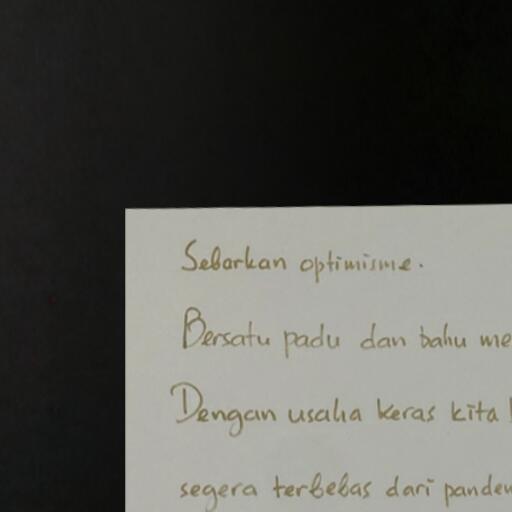 Sebarkan optimisme.
Bersatu padu dan bahu me
Dengan usaha keras kita
segera terbebas dari pandem